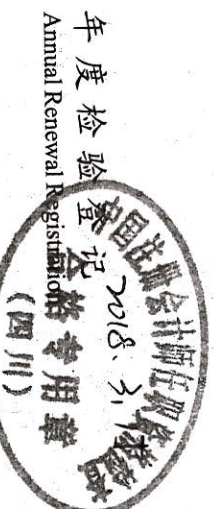 年度检验登记
Annual Renewal Registration
2018、3、
中国注册会计师任职资格
专用章
(四川)